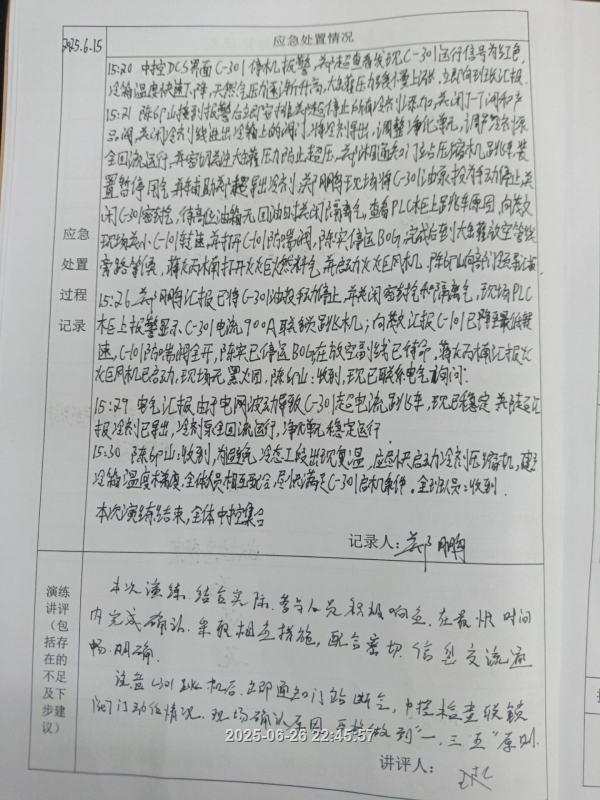 2025.6.15
应急处置情况
15:20 中控DCS界面C-301停机报警,超查看发现C-301运行信号为红色,
冷箱温度快速下降,天然气压力逐渐升高,大罐压力缓慢上涨,立即向班长汇报.
15:21 接到报警后立即安排停止所有冷剂添加,关闭J-T阀和产
品阀,关闭冷剂线进出冷箱上的阀门,将冷剂导出,调整净化单元,调严冷剂泵
全回流运行,并密切关注大罐压力防止超压,通知门站压缩机跳车,装
置暂停用气,并辅助超导出冷剂,郑鹏鹏现场将C-301油泵投为手动停止,关
闭C-301密封气,待高位油箱无回油时关闭隔离气,查看PLC柜上跳车原因,向
现场减小C-101转速,并打开C-101防喘阀,陈实停运BOG,完成后到大罐放空管线
旁路等候,打开火炬燃料气,并启动火炬风机,
应急
处置
过程
记录
15:26 郑鹏鹏汇报已将C-301油投手动停止,并关闭密封气和隔离气,现场PLC
柜上报警显示C-301电流900A联锁跳机;向汇报C-101已降至最低转
速,C-101防喘阀全开,陈实已停运BOG在放空副线已待命,汇报火
炬风机已启动,现场无黑火团,收到,现已联系电气询问.
15:29 电气汇报由于电网波动导致C-301超电流跳车,现已稳定,汇
报冷剂已导出,冷剂泵全回流运行,净化单元稳定运行
15:30 收到,为避免冷态工段出现复温,应尽快启动冷剂压缩机,建立
冷箱温度梯度,全体人员相互配合,尽快满足C-301启机条件,全班人员:收到.
本次演练结束,全体中控集合
记录人:郑鹏鹏
演练
讲评
(包
括存
在的
不足
及下
步建
议)
本次演练结合实际,参与人员积极响应,在最快时间
内完成确认,采取相应措施,配合密切,信息交流通
畅,明确.
注意C301跳机后,立即通知门站断气,中控检查联锁
阀门动作情况,现场确认原因,严格做到"一,三五"原则.
2025-06-26 22:45:57
讲评人: